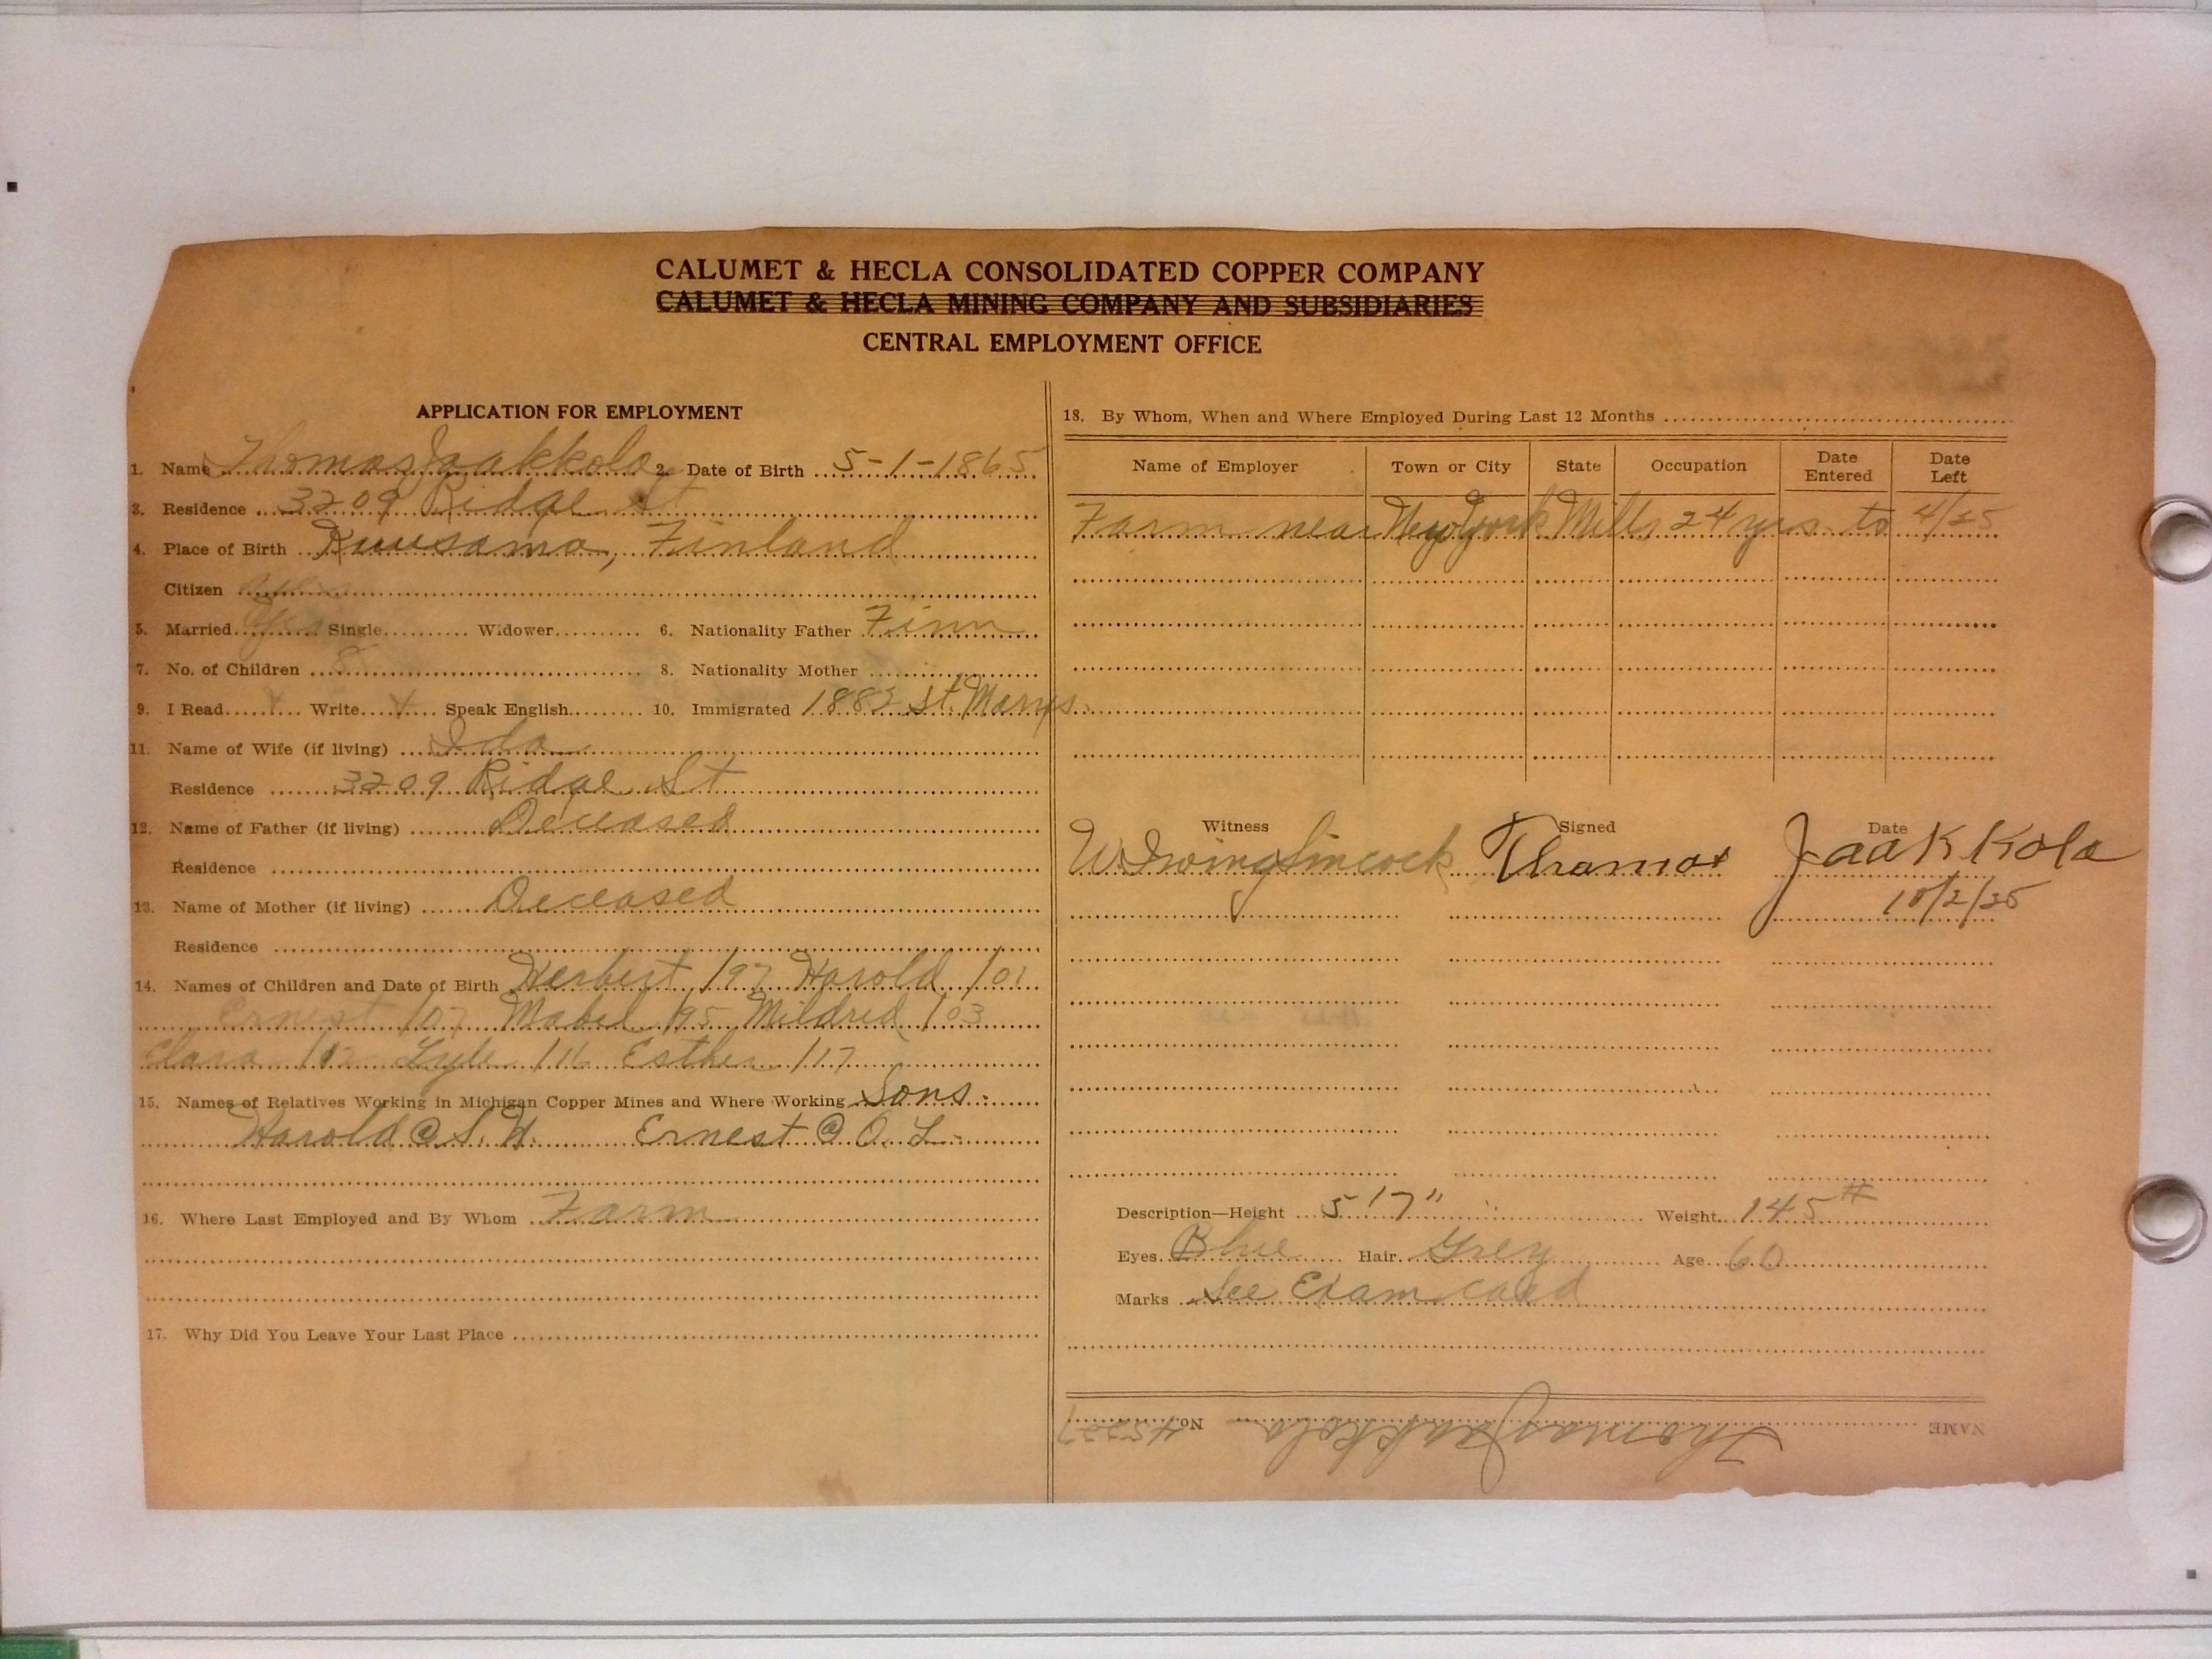 CALUMET & HECLA CONSOLIDATED COPPER COMPANY
CALUMET & HECLA MINING COMPANY AND SUBSIDIARIES
CENTRAL EMPLOYMENT OFFICE
APPLICATION FOR EMPLOYMENT
1. Name Thomas Jaakkola 2. Date of Birth 5-1-1865
3. Residence 3209 Ridge St
4. Place of Birth Kuusamo, Finland
Citizen
5. Married Yes Single Widower 6. Nationality Father Finn
7. No. of Children 8 8. Nationality Mother
9. I Read Write Speak English 10. Immigrated St. Marys
11. Name of Wife (if living) Ida
Residence 3209 Ridge St
12. Name of Father (if living) Deceased
Residence
13. Name of Mother (if living) Deceased
Residence
14. Names of Children and Date of Birth Herbert /97 Harold /01
Ernest /07 Mabel /95 Mildred /03
Clara Lyle /16 Esther /17
15. Names of Relatives Working in Michigan Copper Mines and Where Working Sons:
Harold @ Ernest @ O. L.
16. Where Last Employed and By Whom Farm
17. Why Did You Leave Your Last Place
18. By Whom, When and Where Employed During Last 12 Months
Name of Employer Town or City State Occupation Date Entered Date Left
Farm near New York Mills 24 yrs to 4/25
Witness Signed Date
W. Irwing Sincock Thomas Jaakkola
10/2/25
Description—Height 5'7" Weight 145#
Eyes Blue Hair Grey Age 60
Marks See Exam card
NAME Thomas Jaakkola No.